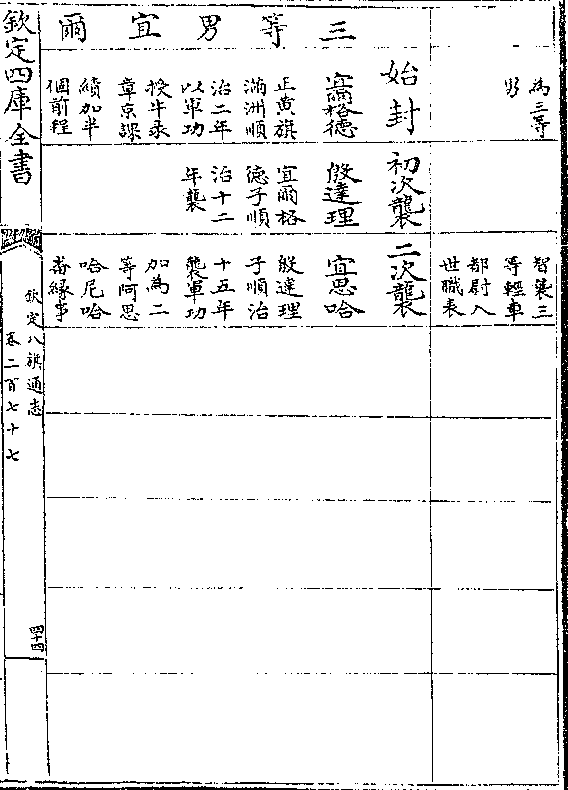 為三等
男
智襲三
等輕車
都尉入
世職表
三等男宜爾
始封
宜爾格德
正黃旗
滿洲順
治二年
以軍功
授牛彔
章京課
績加半
個前程
初次襲
殷達理
宜爾格
德子順
治十二
年襲
二次襲
宜思哈
殷達理
子順治
十五年
襲軍功
加為二
等阿思
哈尼哈
番緣事
欽定四庫全書
欽定八旗通志
卷二百七十七
四十四